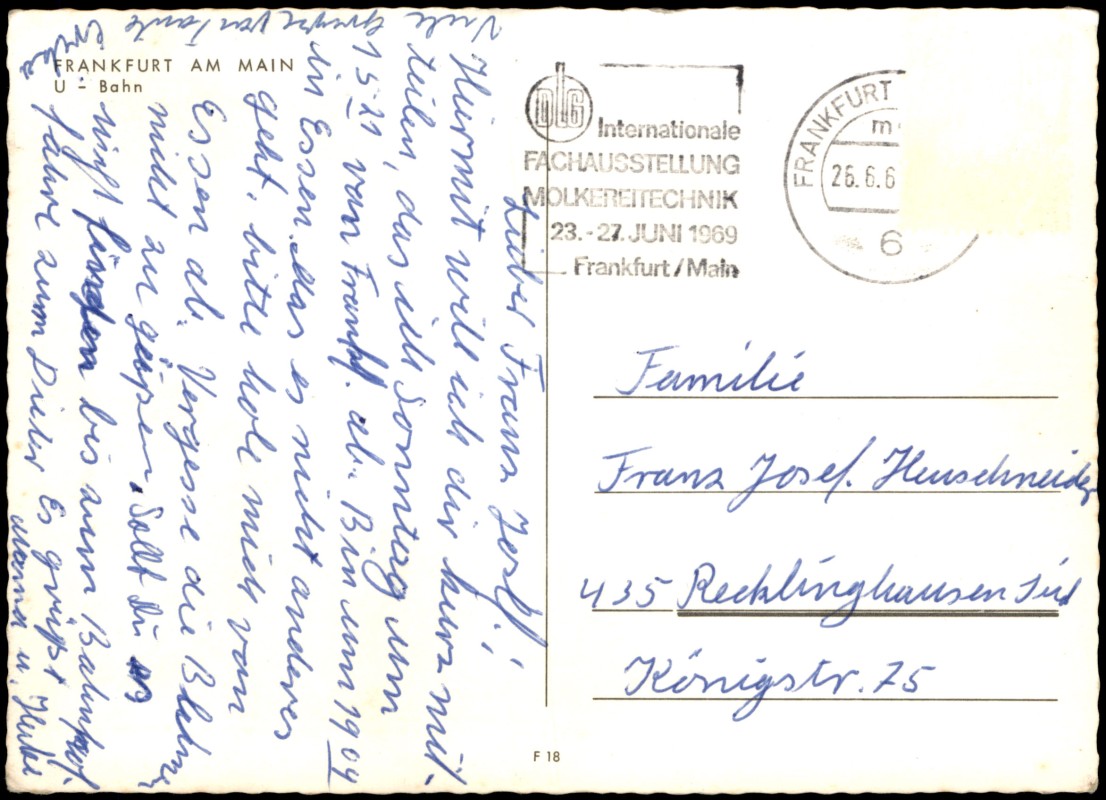 FRANKFURT AM MAIN
U – Bahn
Lieber Franz Josef!
Hiermit will ich dir kurz mit-
teilen, das ich Sonntag um
15 21 von Frankf. ab. Bin um 19 04
in Essen. Was es nicht anderes
geht, bitte hole mich von
Essen ab. Vergesse die Blumen
nicht zu Sollt Du
nicht bis zum Bahnhof.
fahre zum Dieter Es grüßt
Mama u.
Viele Grüße von Tante
DLG
Internationale
FACHAUSSTELLUNG
MOLKEREITECHNIK
23.-27. JUNI 1969
Frankfurt/Main
FRANKFURT
26.6.6
6
Familie
Franz Josef. Heuschneider
435 Recklinghausen Süd
Königstr. 75
F 18